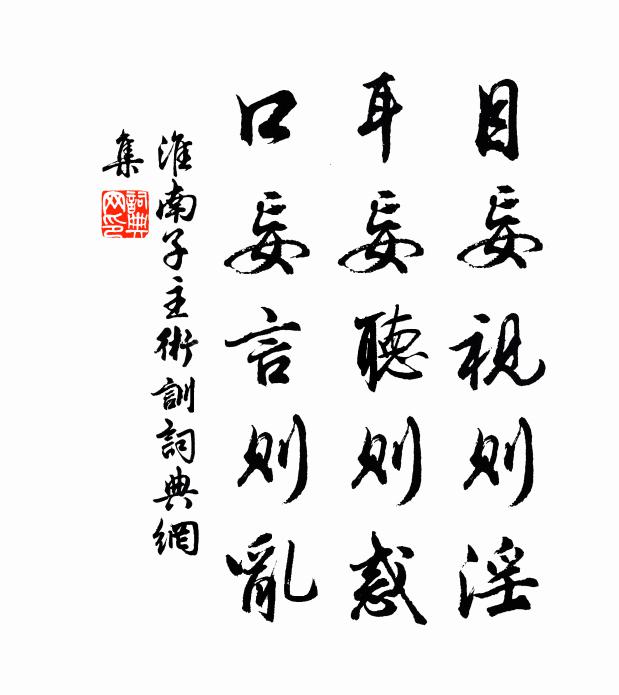 目妄視則淫
耳妄聽則惑
口妄言則亂
淮南子主術訓詞典網
集
詞典
网印